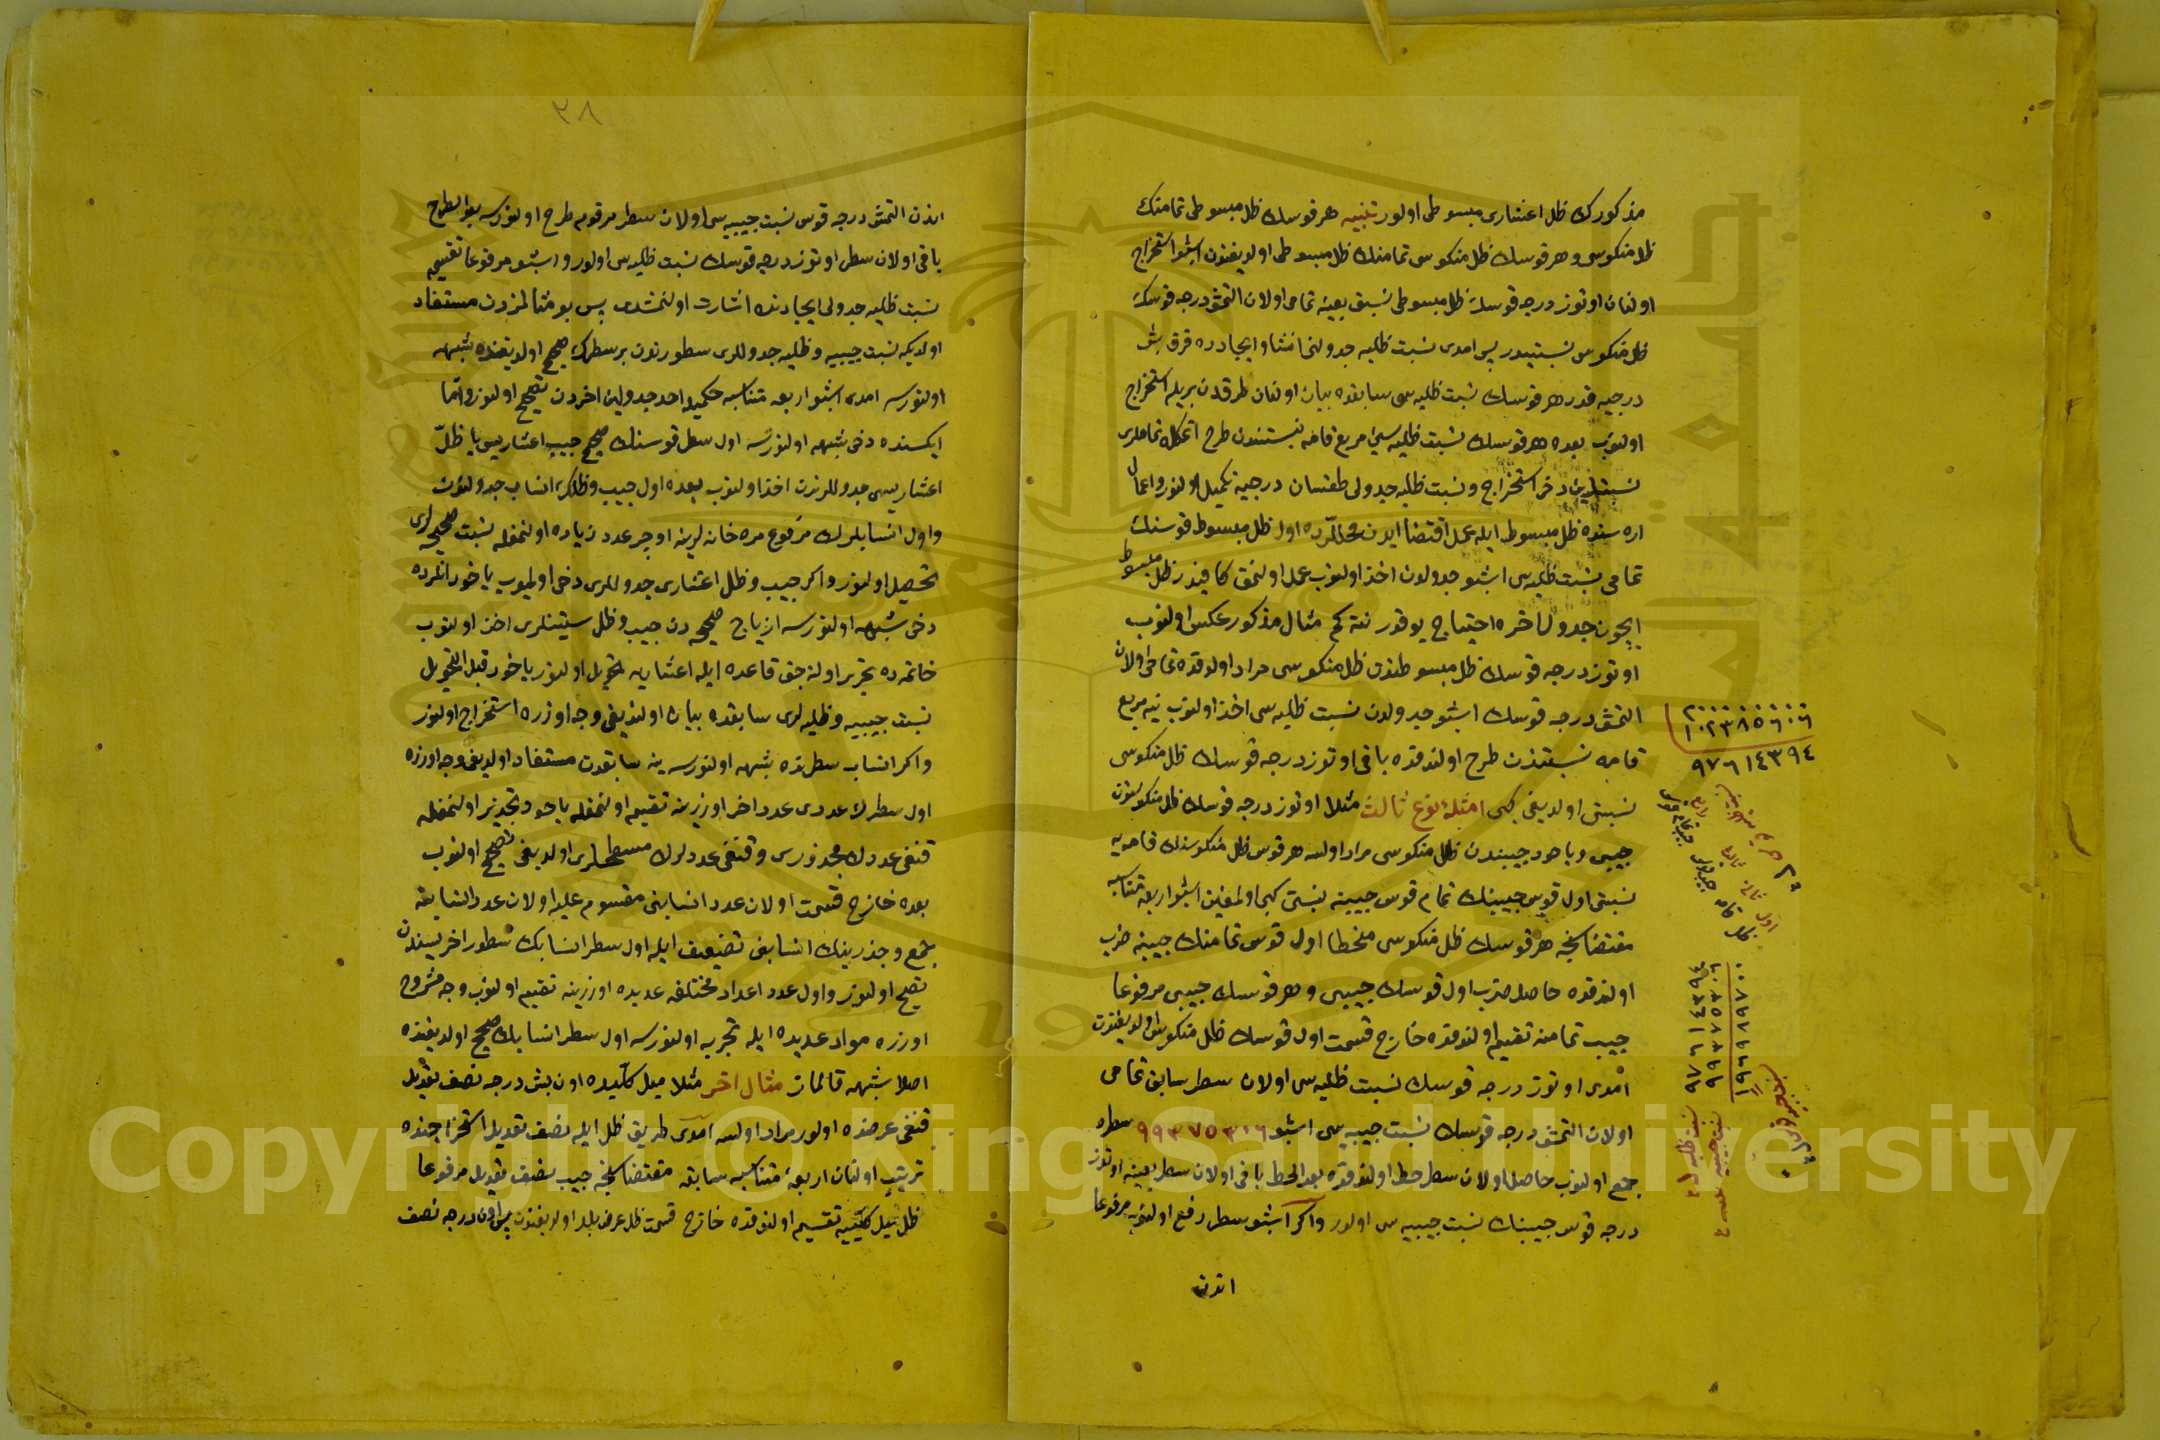 مذكورك ظل اعشارى مبسوطى اولور تنبيه هر قوسك ظل مبسوطى تمامنك
ظل منكوسى و هر قوسك ظل منكوسى تمامنك ظل مبسوطى اولديغندن اشبو استخراج
اولنان اوتوز درجه قوسك ظل مبسوطى نسبتى بعينه تمامى اولان التمش درجه قوسك
ظل منكوس نسبتيدر پس امدى نسبت ظليه جدولنى انشا و ايجاده قرق بش
درجيه قدر هر قوسك نسبت ظليه سى سابقده بيان اولنان طرقدن بريله استخراج
اولنوب بعده هر قوسك نسبت ظليه سنى مربع قامه نسبتندن طرح اتمكله تماملرى
نسبتلرين دخى استخراج و نسبت ظليه جدولى طقسان درجيه تكميل اولنور و اعمال
اره سنده ظل مبسوط ايله عمل اقتضا ايدن محللرده اول ظل مبسوط قوسنك
تمامى نسبت ظليه سى اشبو جدولدن اخذ اولنوب عمل اولنمق كافيدر ظل مبسوط
ايچون جدول اخره احتياج يوقدر نته كم مثال مذكور عكس اولنوب
اوتوز درجه قوسك ظل مبسوطندن ظل منكوسى مراد اولندقده تمامى اولان
التمش درجه قوسك اشبو جدولدن نسبت ظليه سى اخذ اولنوب ينه مربع
قامه نسبتندن طرح اولندقده باقى اوتوز درجه قوسك ظل منكوسى
نسبتى اولديغى كبى امثلۀ نوع ثالث مثلا اوتوز درجه قوسك ظل منكوسندن
جيبى و ياخود جيبندن ظل منكوسى مراد اولسه هر قوس ظل منكوسنك قامه يه
نسبتى اول قوس جيبنك تمام قوس جيبنه نسبتى كبى اولمغين اشبو اربعه متناسبه
مقتضاسنجه هر قوسك ظل منكوسى منحطا اول قوس تمامنك جيبنه ضرب
اولندقده حاصل ضرب اول قوسك جيبى و هر قوسك جيبى مرفوعا
جيب تمامنه تقسيم اولندقده خارج قسمت اول قوسك ظل منكوسى اولديغندن
امدى اوتوز درجه قوسك نسبت ظليه سى اولان سطر سابق تمامى
اولان التمش درجه قوسك نسبت جيبيه سى اشبو ٩٩٣٧٥٣٠٦ سطره
جمع اولنوب حاصل اولان سطر حط اولندقده بعد الحط باقى اولان سطر بعينه اوتوز
درجه قوس جيبنك نسبت جيبيه سى اولور و اكر اشبو سطر رفع اولنوب مرفوعا
اندن
٢٠٠٠٠٠٠٠٠
١٠٢٣٨٥٦٠٦
٩٧٦١٤٣٩٤
٩٧٦١٤٣٩٤
٩٩٣٧٥٣٠٦
٢٨
اندن التمش درجه قوس نسبت جيبيه سى اولان سطر مرقوم طرح اولنورسه بعد الطرح
باقى اولان سطر اوتوز درجه قوسك نسبت ظليه سى اولور و اشبو مرفوعا تقسيمه
نسبت ظليه جدولى ايجادنده اشارت اولنمشدى پس بو مثاللردن مستفاد
اولديكه نسبت جيبيه و ظليه جدوللرى سطورندن بر سطرك صحيح اولديغنده شبهه
اولنورسه امدى اشبو اربعه متناسبه حكميله احد جدولين اخردن تصحيح اولنور و اما
ايكسنده دخى شبهه اولنورسه اول سطر قوسنك صحيح جيب اعشاريسى يا ظل
اعشاريسى جدوللرندن اخذ اولنوب بعده اول جيب و ظلك انساب جدولندن
و اول انسابلرك مرفوع مره خانه لرينه اوچر عدد زياده اولنمغله نسبت صحيحه لرى
تحصيل اولنور و اكر جيب و ظل اعشارى جدوللرى دخى اوليوب ياخود انلرده
دخى شبهه اولنورسه ازياج صحيحه دن جيب و ظل ستينلرى اخذ اولنوب
خاتمه ده تحرير اولنه جق قاعده ايله اعشاريه تحويل اولنور ياخود قبل التحويل
نسبت جيبيه و ظليه لرى سابقده بيان اولنديغى وجه اوزره استخراج اولنور
و اكر انساب سطرنده شبهه اولنورسه ينه سابقدن مستفاد اولديغى وجه اوزره
اول سطرك عددى عدد اخر اوزرينه تقسيم اولنمغله ياخود تجذير اولنمغله
قنغى عددك مجذورى و قنغى عددلرك مسطحلرى اولديغى تصحيح اولنوب
بعده خارج قسمت اولان عدد انسابنى مقسوم عليه اولان عدد انسابنه
جمع و جذرينك انسابنى تضعيف ايله اول سطر انسابك سطور اخريسندن
تصحيح اولنور و اول عدد اعداد مختلفه عديده اوزرينه تقسيم اولنوب وجه مشروح
اوزره مواد عديده ايله تجربه اولنورسه اول سطر انسابك صحيح اولديغنده
اصلا شبهه قالماز مثال اخر مثلا ميل كليده اون بش درجه نصف تعديل
قنغى عرضده اولور مراد اولسه امدى طريق ظل ايله نصف تعديل استخراجنده
ترتيب اولنان اربعۀ متناسبه سابقه مقتضاسنجه جيب نصف تعديل مرفوعا
ظل ميل كلييه تقسيم اولندقده خارج قسمت ظل عرض بلد اولديغندن پس اون درجه نصف